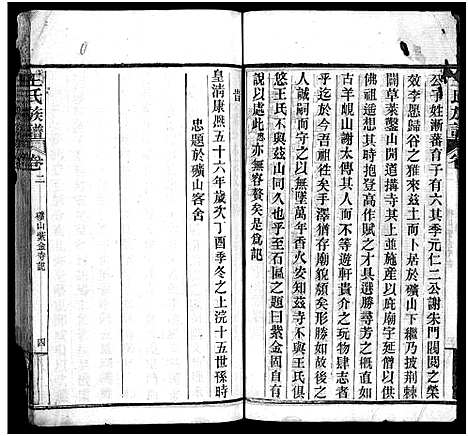 王氏族譜
公子姓漸蕃育子有六其季元仁二公謝朱門閥閱之榮
效李愿歸谷之雅來玆土而卜居於礦山下繼乃披荆棘
闢草萊鑿山開道搆寺其上並施産以庇廟宇延僧以供
佛祖選勝於此其時抱登高作具之選勝尋芳之槪直如
古羊峴山謝太傅其人而不等遊軒貴介之玩物肆志者
乎迄於今吾祖往矣手澤猶存廟貌猶與形勝如故後之
人誠嗣而守之以無墜萬年香火安知玆寺不與王氏俱
悠王氏不與山同久也乎至石區之題曰紫金固自有
說以處此愚亦無容贅矣是爲記
旹
皇淸康熙五十六年歲次丁酉季冬之上浣十五世孫時
忠題於礦山客舍
王氏族譜
卷二
礦山紫金寺記
四